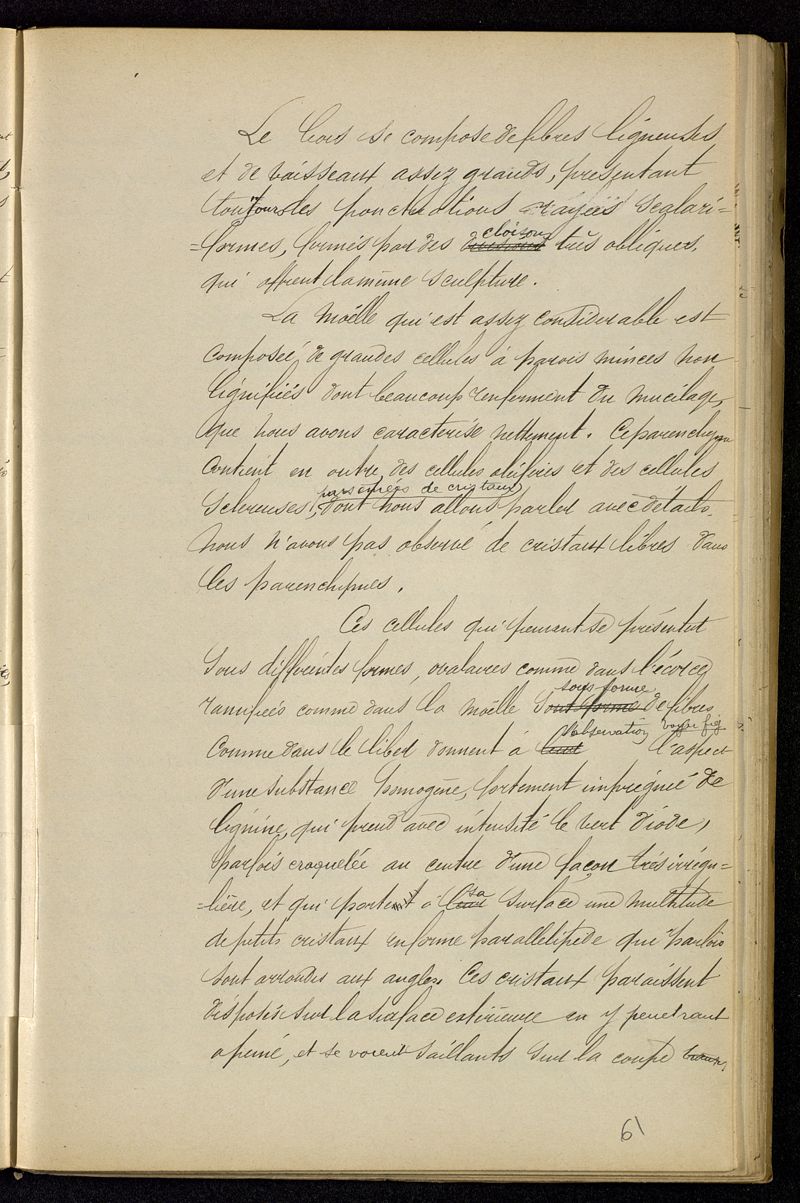 Le bois se compose de fibres ligneuses
et de vaisseaux assez grands, présentant
toujours les ponctuations rayées scalari=
=formes, formés par des cloisons très obliques,
qui offrent la même sculpture.
La moëlle qui est assez considerable est
composée de grandes cellules à parois minces non
lignifiés dont beaucoup renferment du mucilage,
que nous avons caracterisé nettement. Ce parenchyme
contient en outre des cellules oleifères et des cellules
sclereuses, parsemées de cristaux,
dont nous allons parler avec details.
nous n'avons pas observé de cristaux libres dans
les parenchymes.
Ces cellules qui peuvent se présenter
sous différentes formes, ovalaires comme dans l'écorce
ramifiées comme dans la moëlle sous forme de fibres
comme dans le liber donnent à l'observation voyer fig l'aspect
d'une substance homogène, fortement impregnée de
lignine, qui prend avec intensité le vert d'iode,
parfois craquelée au centre d'une façon très irrégu=
=lière, et qui porte à sa surface une multitude
de petits cristaux en forme parallelipede qui parfois
sont arrondis aux angles. Ces cristaux paraissent
disposés sur la surface extérieure en y penetrant
a peine, et se voient saillants sur la coupe
61